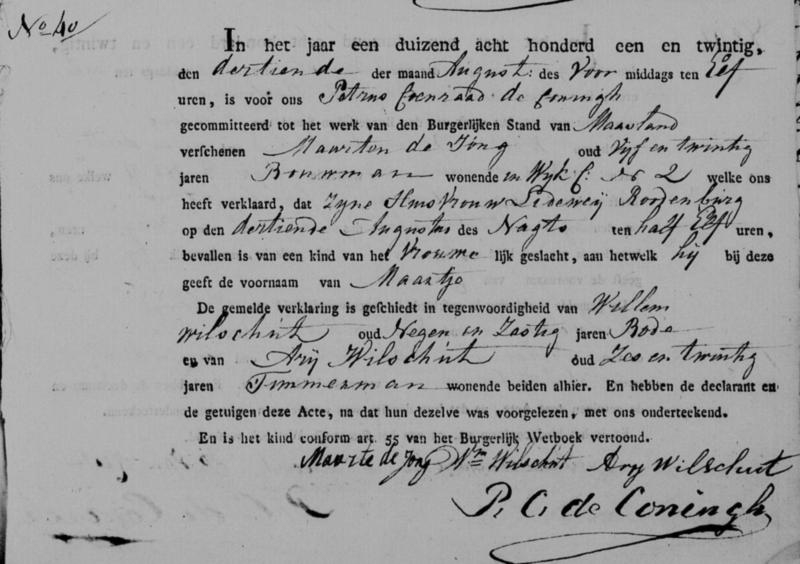 No 40
In het jaar een duizend acht honderd een en twintig,
den dertiende der maand August: des Voor middags ten Elf
uren, is voor ons Petrus Coenraad de Coningh
gecommitteerd tot het werk van den Burgerlijken Stand van Maasland
verschenen Maarten de Jong oud Vyf en twintig
jaren Bouwman wonende in Wyk C: No 2 welke ons
heeft verklaard, dat Zyne Huis Vrouw Ledewey Roodenburg
op den dertiende Augustus des Nagts ten half Elf uren,
bevallen is van een kind van het Vrouwe lijk geslacht, aan hetwelk hij bij deze
geeft de voornaam van Maartje
De gemelde verklaring is geschied in tegenwoordigheid van Willem
Wilschut oud Negen en Zestig jaren Bode
en van Arij Wilschut oud Zes en twintig
jaren Timmerman wonende beiden alhier. En hebben de declarant en
de getuigen deze Acte, na dat hun dezelve was voorgelezen, met ons onderteekend.
En is het kind conform art. 55 van het Burgerlijk Wetboek vertoond.
Maarte de Jong Wm Wilschut Ary Wilschut
P. C. de Coningh